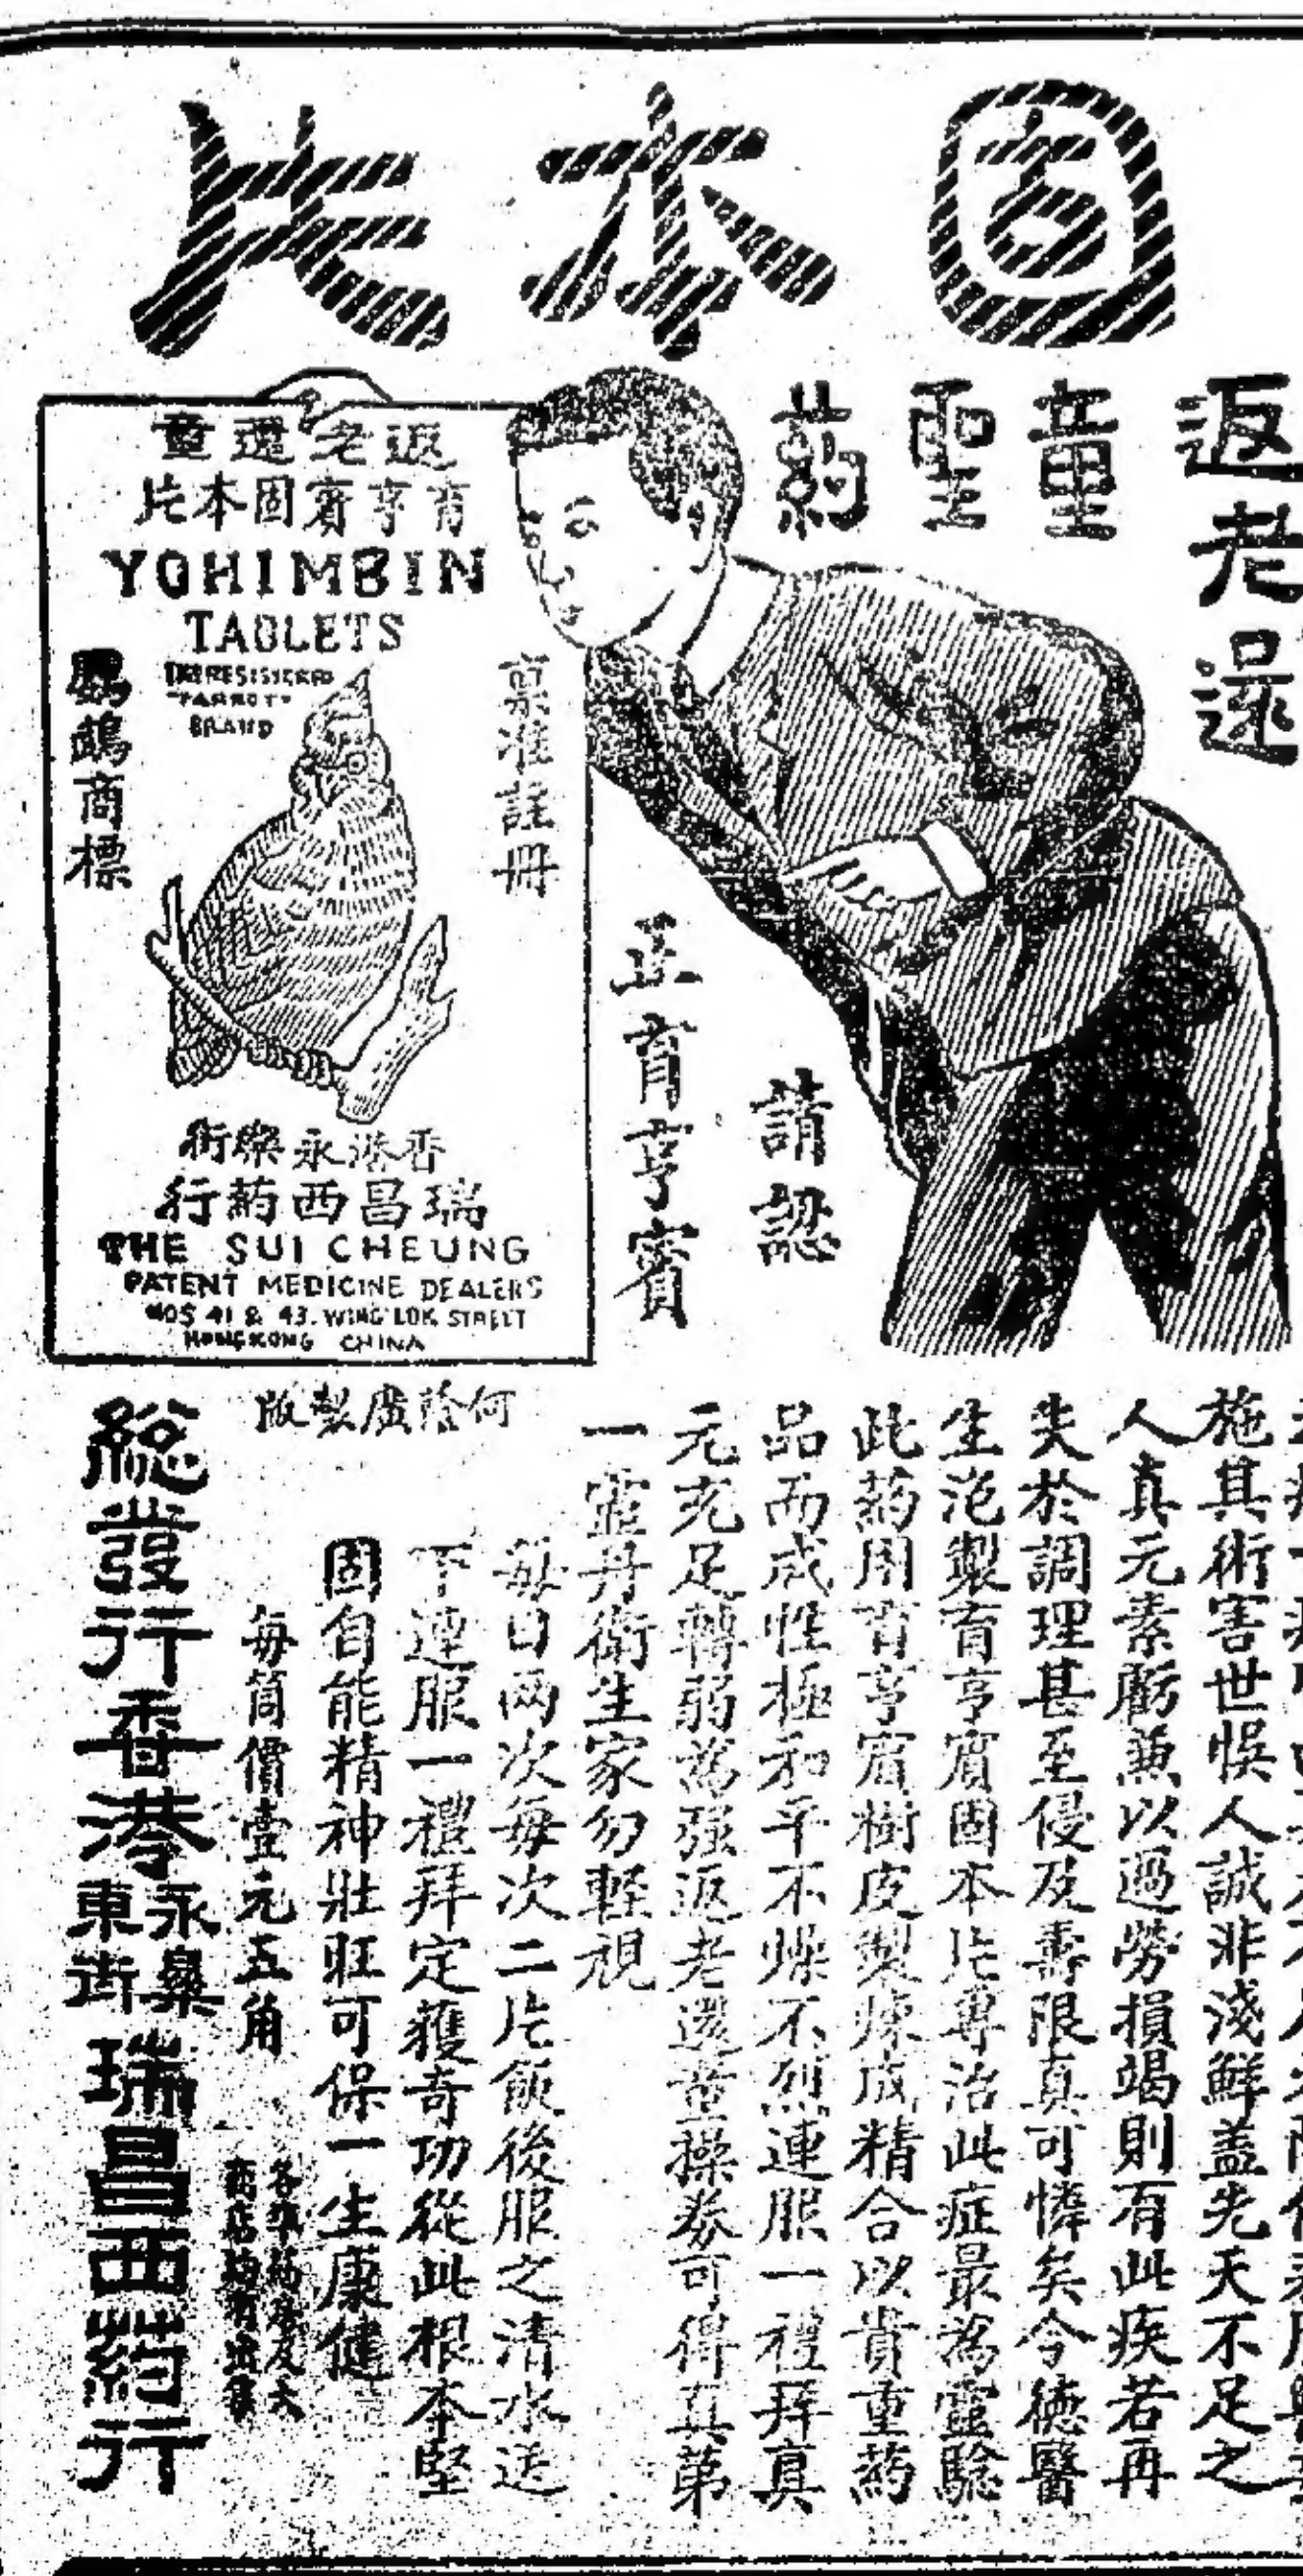 固本片
返老還
童聖药
請認
正育亨賓
返老還童
育亨賓固本片
YOHIMBIN
TABLETS
"PARROT"
BRAND
鸚鵡商標
禀准註冊
香港永樂街
瑞昌西药行
THE SUI CHEUNG
PATENT MEDICINE DEALERS
NOS 41 & 43. WING LOK STREET
HONGKONG CHINA
何蔭廣製版
施其術害世悞人誠非淺鮮盖先天不足之
人真元素虧兼以過勞損竭則有此疾若再
失於調理甚至侵及壽限真可憐矣今德醫
生范製育亨賓固本片專治此症最為靈驗
此药用育亨賓樹皮製煉成精合以貴重药
品而成性極和平不燥不烈連服一禮拜真
元充足轉弱為强返老還童操券可得真第
一靈丹衛生家勿輕視
每日两次每次二片飯後服之清水送
下連服一禮拜定獲奇功從此根本堅
固自能精神壯旺可保一生康健
每筒價壹元五角
総發行香港永樂東街瑞昌西药行